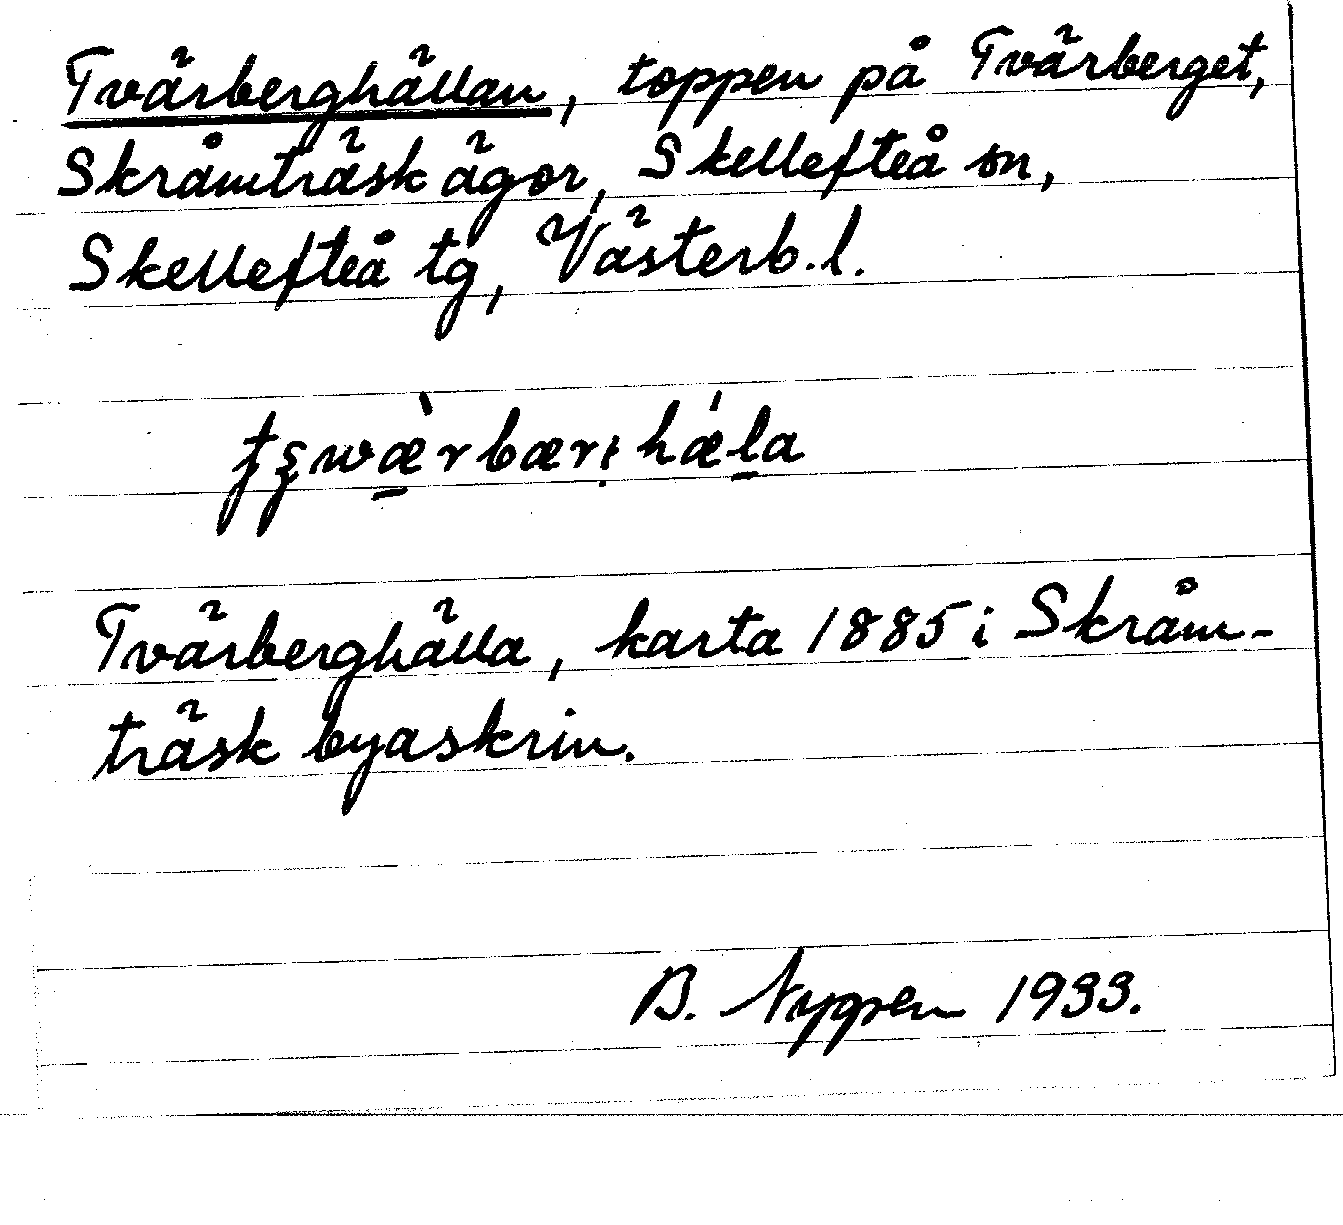 Tvärberghällan, toppen på Tvärberget,
Skråmträsk ägor, Skellefteå sn,
Skellefteå tg, Västerb. l.
Tvärberghälla, karta 1885 i Skråm-
träsk byaskrin.
B. 1933.